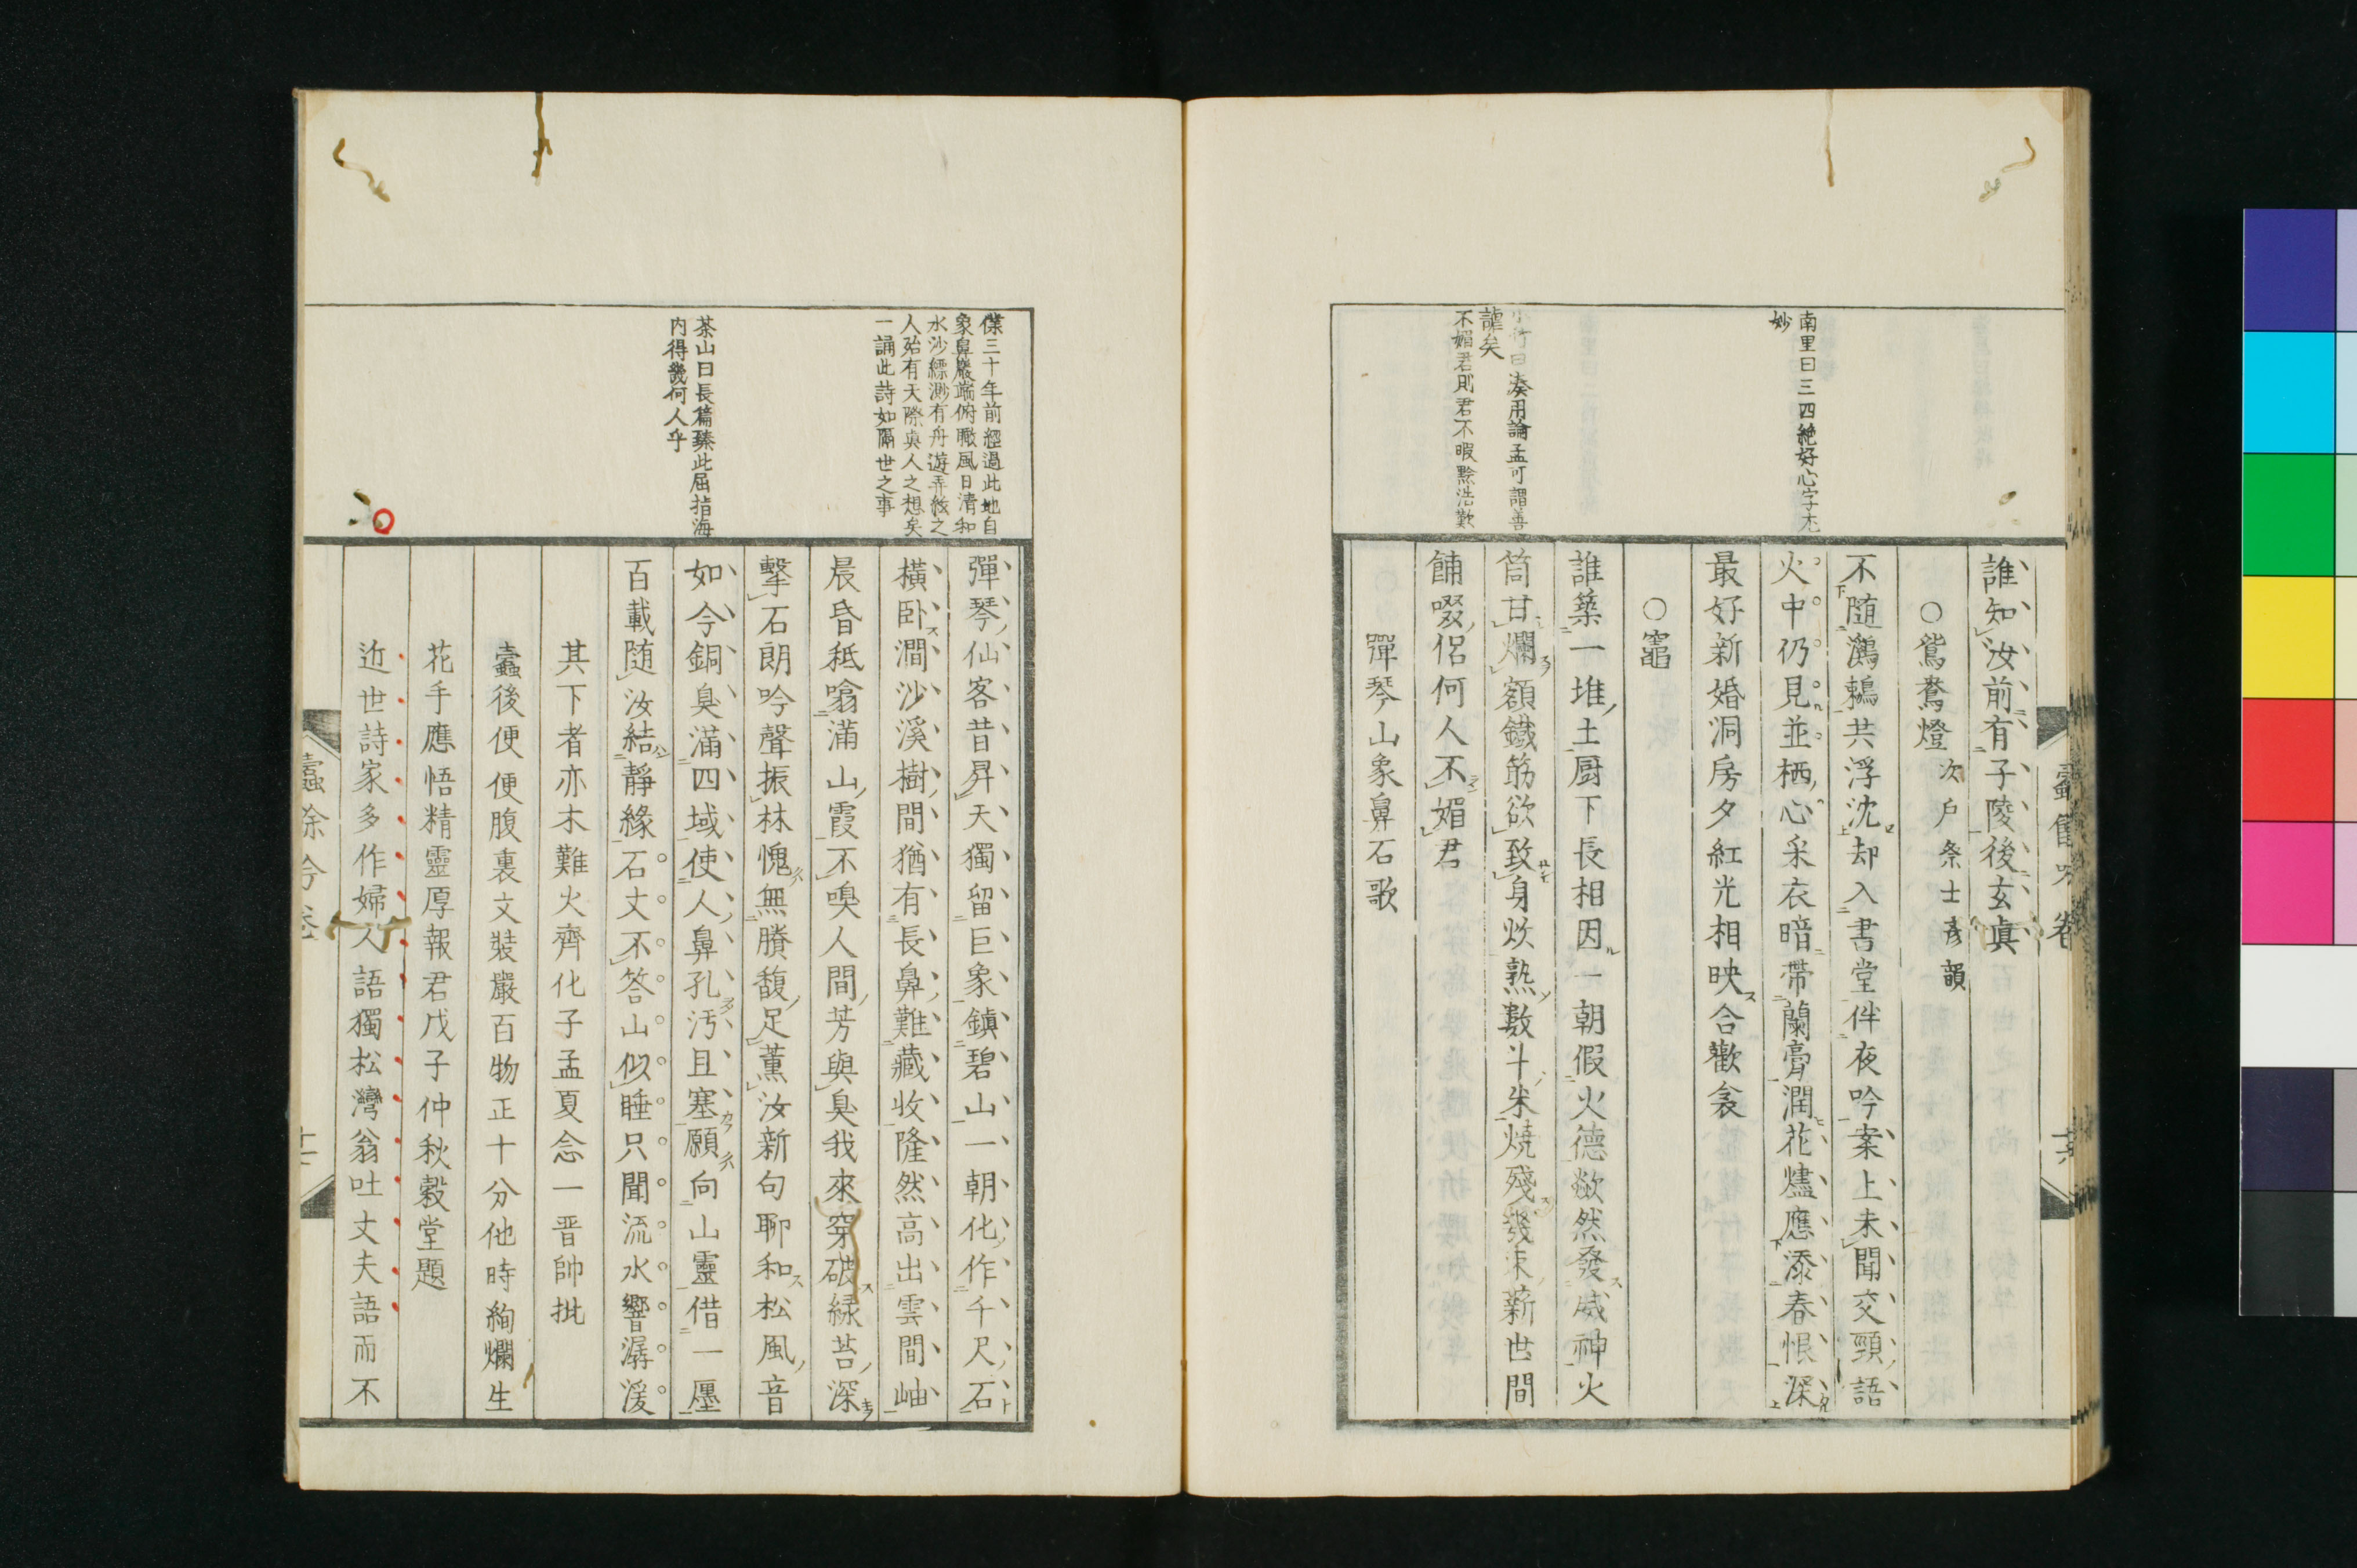 南里曰三四絶好心字尤
妙
小竹曰湊用論孟可謂善
謔矣
不媚君則君不暇黔浩歎
誰知汝前有子陵後玄眞
○鴛鴦燈次戶祭士彦韻
不随鸂鶒共浮沈却入書堂伴夜吟案上未聞交頸語
火中仍見並栖心采衣暗帶蘭膏潤花燼應添春恨深
最好新婚洞房夕紅光相映合歡衾
○竈
誰築一堆土厨下長相因一朝假火德歘然發威神火
筒甘爛額鐵筋欲致身炊熟數斗米燒殘幾束薪世間
餔啜侶何人不媚君
彈琴山象鼻石歌
僕三十年前經過此地自
象鼻巖端俯瞰風日清和
水沙縹渺有舟遊弄絃之
人殆有天際眞人之想矣
一誦此詩如隔世之事
茶山曰長篇臻此屈指海
内得幾何人乎
彈琴仙客昔昇天獨留巨象鎮碧山一朝化作千尺石
橫卧澗沙溪樹間猶有長鼻難藏收隆然高出雲間岫
晨昏秪噏滿山霞不嗅人間芳與臭我來穿破緑苔深
擊石朗吟聲振林愧無賸馥足薰汝新句聊和松風音
如今銅臭滿四域使人鼻孔汚且塞願向山靈借一廛
百載随汝結靜緣石丈不答山似睡只聞流水響潺湲
其下者亦木難火齊化子孟夏念一晋帥批
蠹後便便腹裏文裝嚴百物正十分他時絢爛生
花手應悟精靈厚報君戊子仲秋穀堂題
近世詩家多作婦人語獨松灣翁吐丈夫語而不